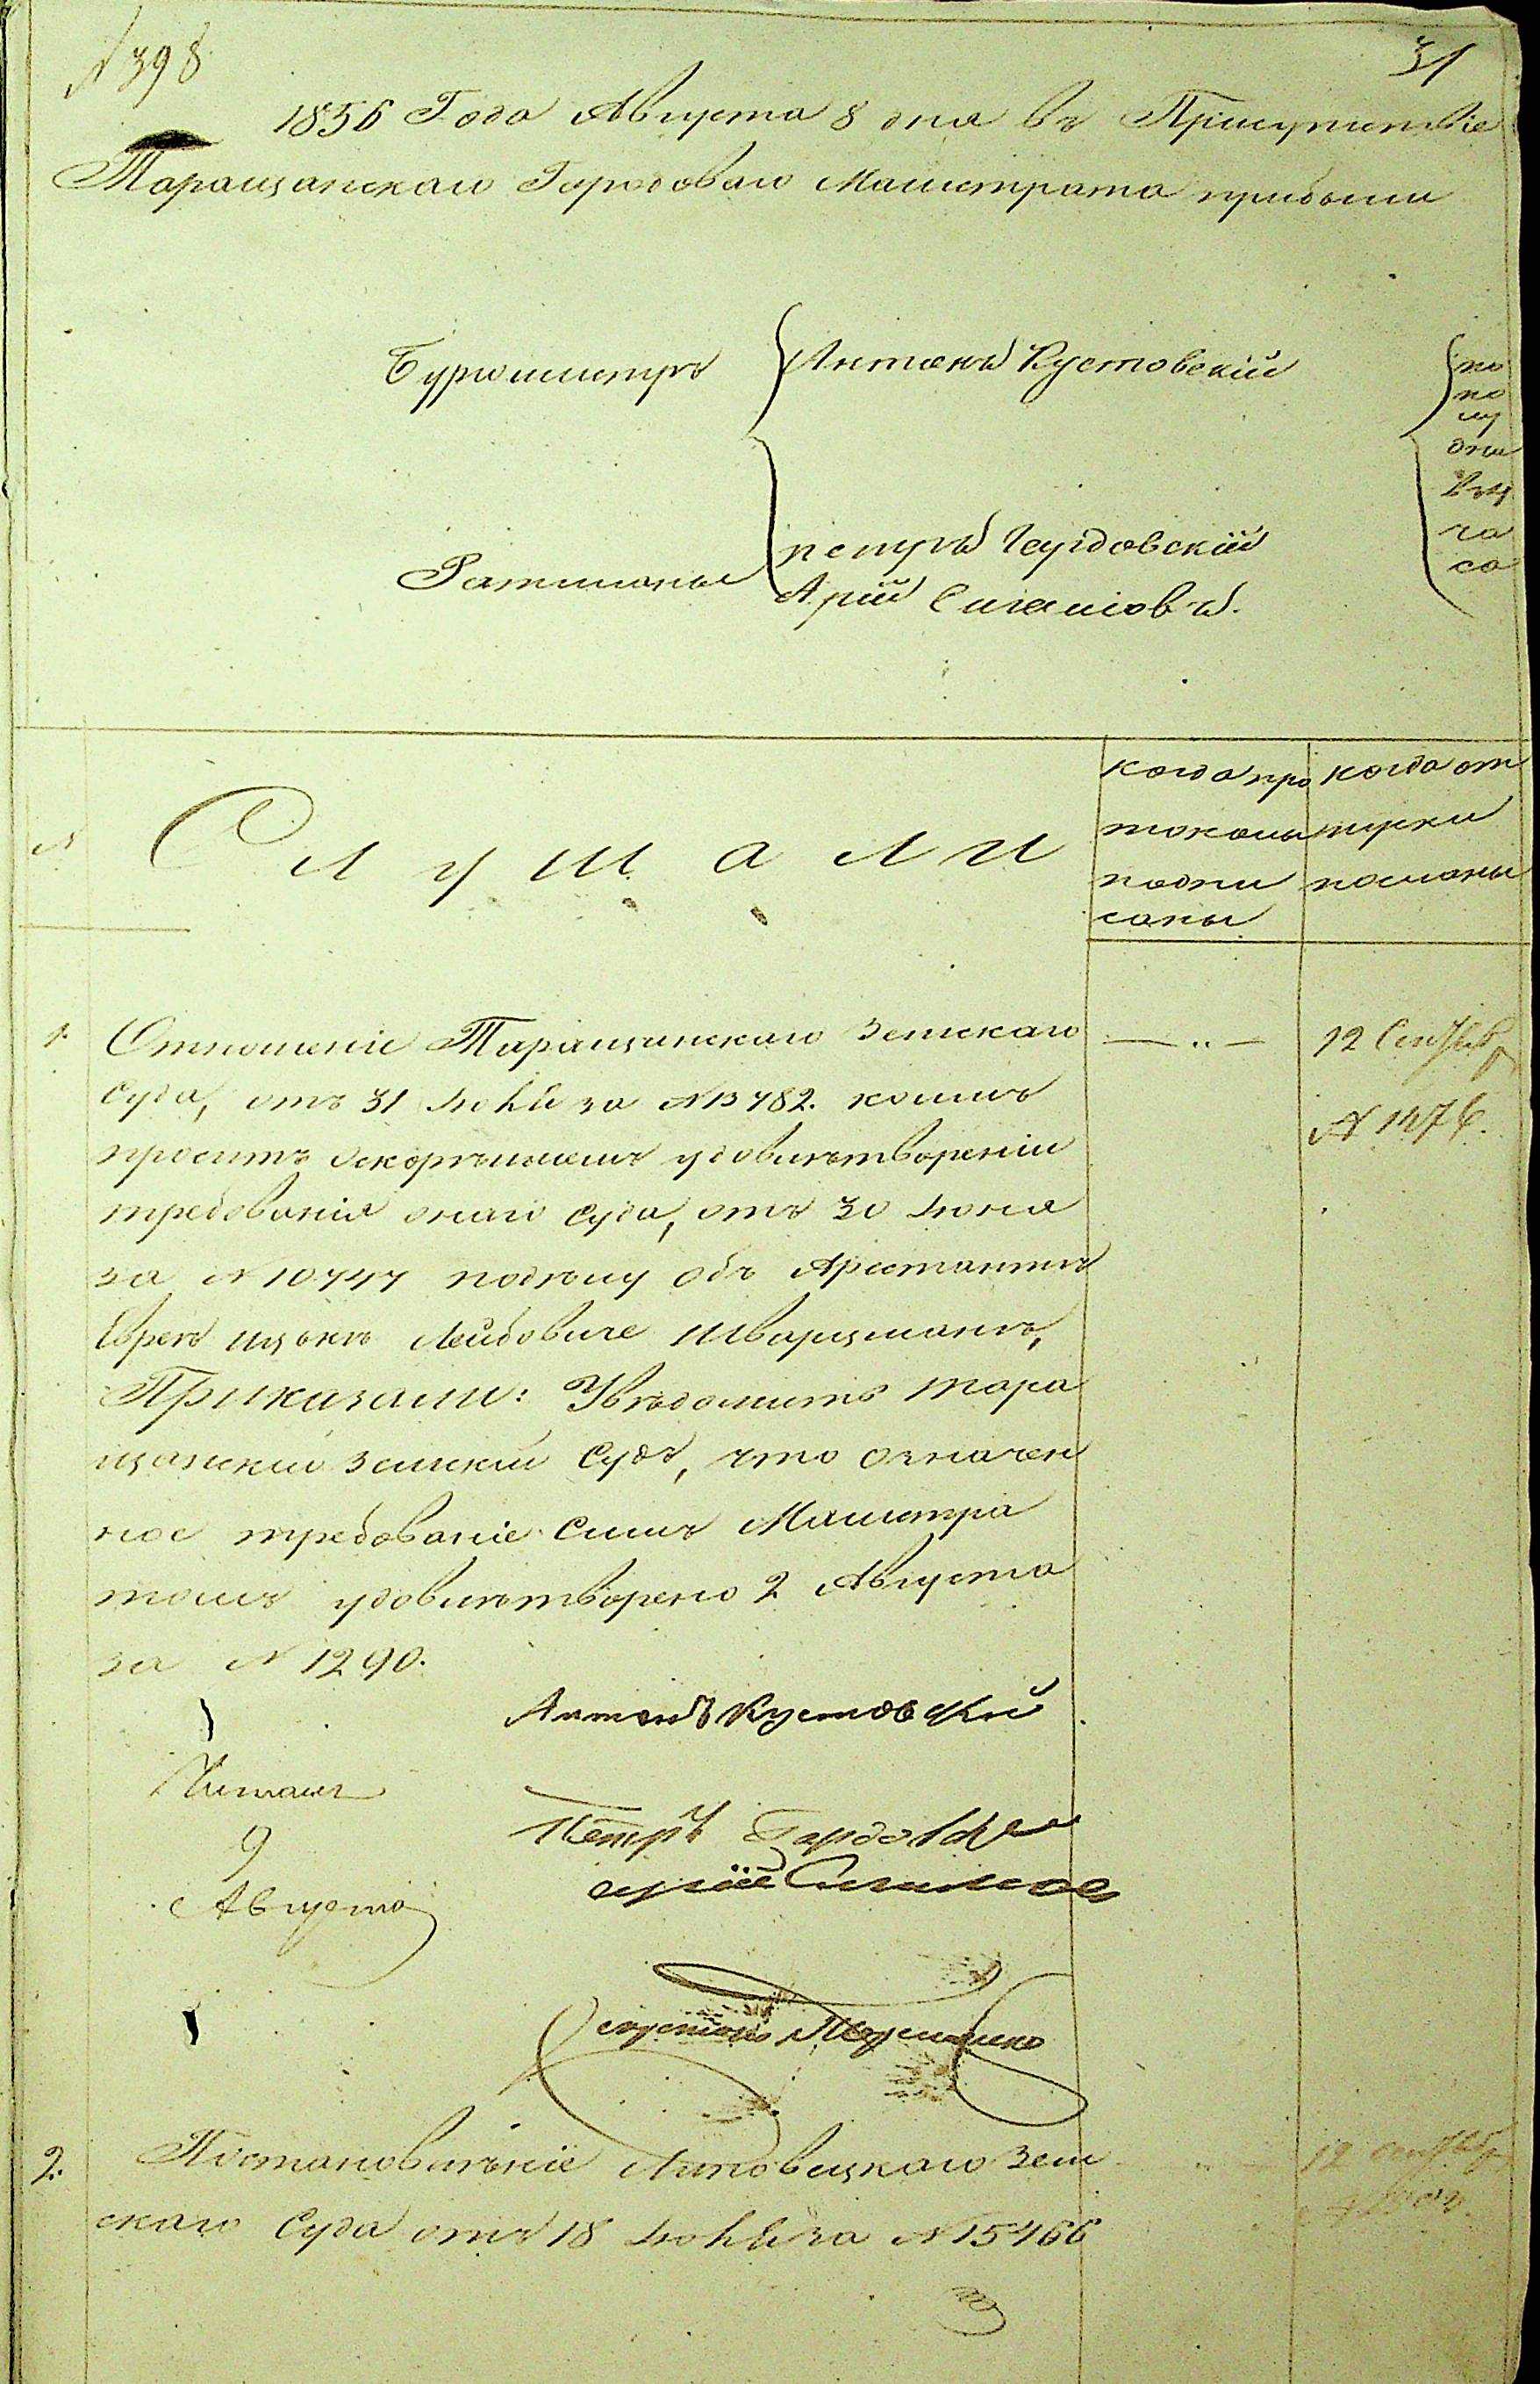 № 398
31
1856 Года Августа 8 дня въ Присутствіе
Таращанскаго Городоваго Магистрата прибыли
Бургомистръ
Антонъ Кустовскій
Ратманы
петръ Гардовскій
Арій
по
по
лу
дни
ча
са
№
Слушали
когда про
токолы
подпи
саны
когда от
пуски
посланы
1.
Отношеніе Таращанскаго Земскаго
Суда, отъ 31 Іюля за № 13782. коимъ
проситъ оскорѣйшемъ удовлетвореніи
требованія онаго Суда, отъ 30 Іюня
за № 10747 по дѣлу объ Арестантѣ
Евреѣ Ицькѣ Лейбовиче Шварцманѣ,
Приказали: Увѣдомить Тара
щанскій Земскій Судъ, что означен
ное требованіе симъ Магистра
томъ удовлетворено 2 Августа
за № 1290.
12 Сентяб
№ 1476.
Антонъ Кустовскій
Читалъ
9
Августа
Петръ Гардовскій
2.
Постановленіе Липовецкаго Зем
скаго Суда отъ 18 Іюля за № 15466
12 Сентяб